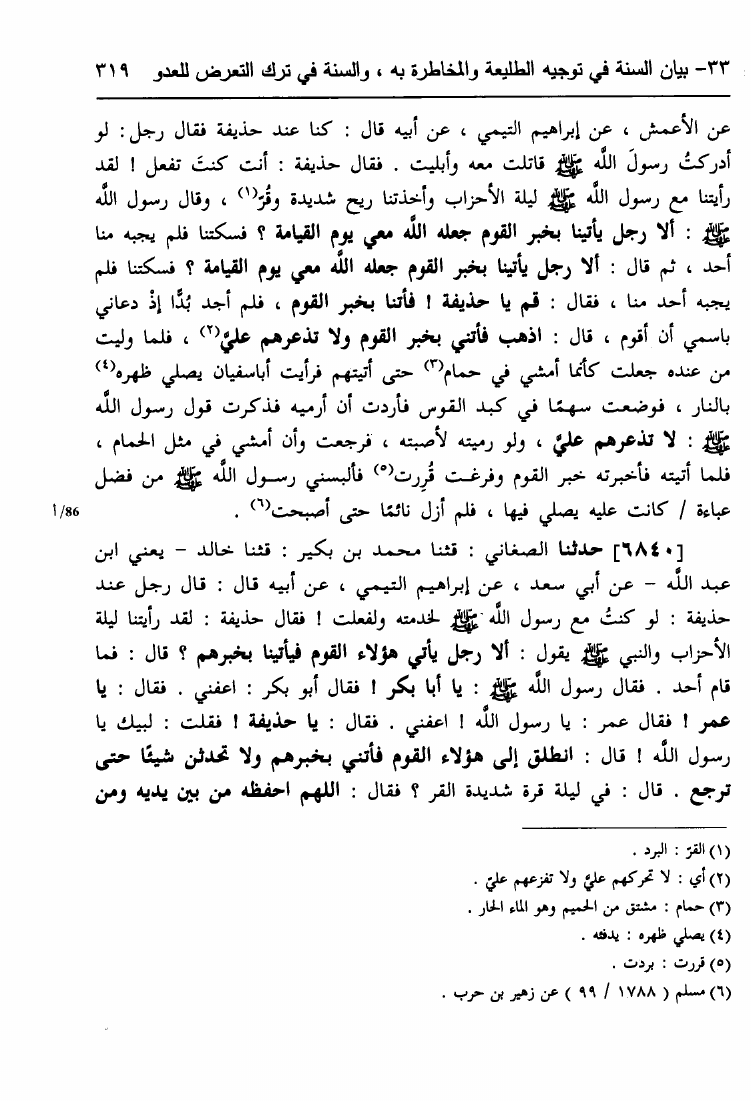 ٣٣- بيان السنة في توجيه الطليعة والمخاطرة به ، والسنة في ترك التعرض للعدو ٣١٩
عن الأعمش ، عن إبراهيم التيمي ، عن أبيه قال : كنا عند حذيفة فقال رجل : لو
أدركتُ رسولَ اللَّه ﷺ قاتلت معه وأبليت . فقال حذيفة : أنت كنتَ تفعل ! لقد
رأيتنا مع رسول اللَّه ﷺ ليلة الأحزاب وأخذتنا ريح شديدة وقُرّ(١) ، وقال رسول اللَّه
ﷺ : ألا رجل يأتينا بخبر القوم جعله اللَّه معي يوم القيامة ؟ فسكتنا فلم يجبه منا
أحد ، ثم قال : ألا رجل يأتينا بخبر القوم جعله اللَّه معي يوم القيامة ؟ فسكتنا فلم
يجبه أحد منا ، فقال : قم يا حذيفة ! فأتنا بخبر القوم ، فلم أجد بُدًّا إذْ دعاني
باسمي أن أقوم ، قال : اذهب فأتني بخبر القوم ولا تذعرهم عليَّ(٢) ، فلما وليت
من عنده جعلت كأنما أمشي في حمام(٣) حتى أتيتهم فرأيت أباسفيان يصلي ظهره(٤)
بالنار ، فوضعت سهمًا في كبد القوس فأردت أن أرميه فذكرت قول رسول اللَّه
ﷺ : لا تذعرهم عليَّ ، ولو رميته لأصبته ، فرجعت وأن أمشي في مثل الحمام ،
فلما أتيته فأخبرته خبر القوم وفرغت قُرِرت(٥) فألبسني رسول اللَّه ﷺ من فضل
عباءة / كانت عليه يصلي فيها ، فلم أزل نائمًا حتى أصبحت(٦) . 86/ا
[٦٨٤٠] حدثنا الصغاني : قثنا محمد بن بكير : قثنا خالد - يعني ابن
عبد اللَّه - عن أبي سعد ، عن إبراهيم التيمي ، عن أبيه قال : قال رجل عند
حذيفة : لو كنتُ مع رسول اللَّه ﷺ لخدمته ولفعلت ! فقال حذيفة : لقد رأيتنا ليلة
الأحزاب والنبي ﷺ يقول : ألا رجل يأتي هؤلاء القوم فيأتينا بخبرهم ؟ قال : فما
قام أحد . فقال رسول اللَّه ﷺ : يا أبا بكر ! فقال أبو بكر : اعفني . فقال : يا
عمر ! فقال عمر : يا رسول اللَّه ! اعفني . فقال : يا حذيفة ! فقلت : لبيك يا
رسول اللَّه ! قال : انطلق إلى هؤلاء القوم فأتني بخبرهم ولا تحدثن شيئًا حتى
ترجع . قال : في ليلة قرة شديدة القر ؟ فقال : اللهم احفظه من بين يديه ومن
(١) القرّ : البرد .
(٢) أي : لا تحركهم عليَّ ولا تفزعهم عليّ .
(٣) حمام : مشتق من الحميم وهو الماء الحار .
(٤) يصلي ظهره : يدفئه .
(٥) قررت : بردت .
(٦) مسلم ( ١٧٨٨ / ٩٩ ) عن زهير بن حرب .